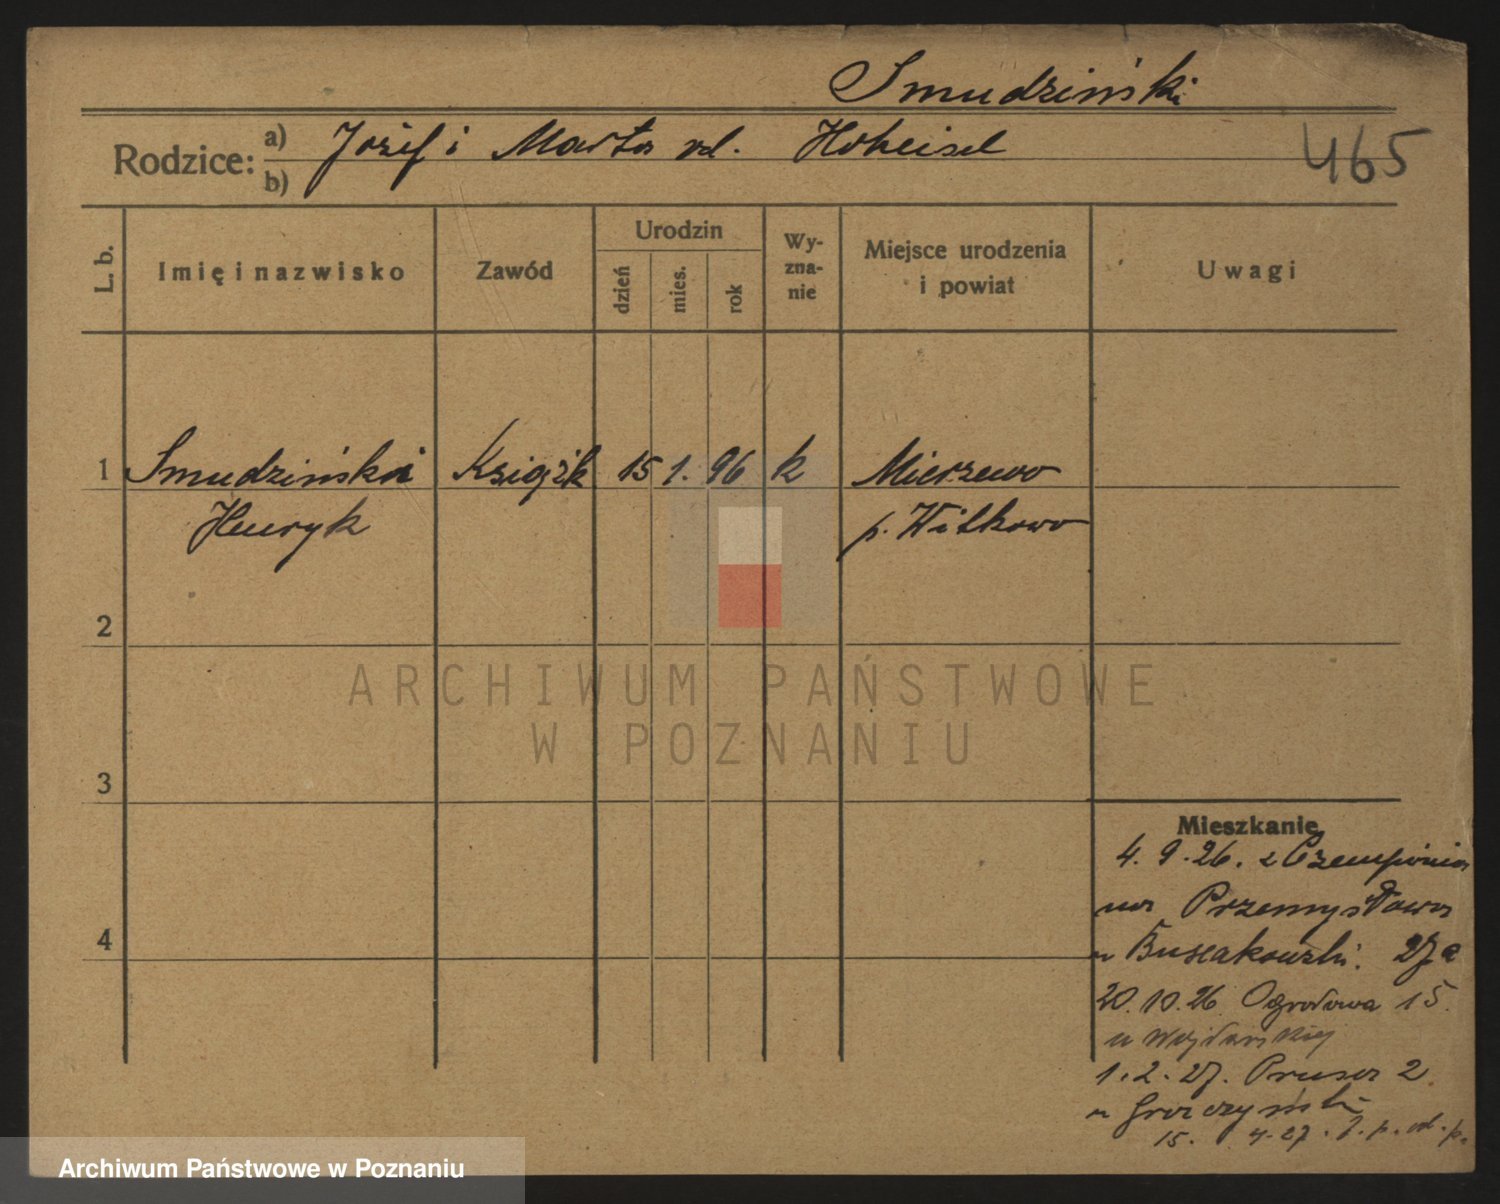 Smudziński
Rodzice: a) b) Józef i Marta rd. Hoheisel
465
L. b.
Imię i nazwisko
Zawód
Urodzin
dzień
mies.
rok
Wy-
zna-
nie
Miejsce urodzenia
i powiat
Uwagi
1 Smudziński Książk 15 1. 96 k Mierzewo
Henryk p. Witkowo
2
3
4
ARCHIWUM PAŃSTWOWE
W POZNANIU
Mieszkanie
4. 9. 26. z Czempinia
na Przemysłowa
u 27a
20. 10. 26 Ogrodowa 15.
u
1. 2. 27. Prusa 2.
u
15. 4. 27.
Archiwum Państwowe w Poznaniu